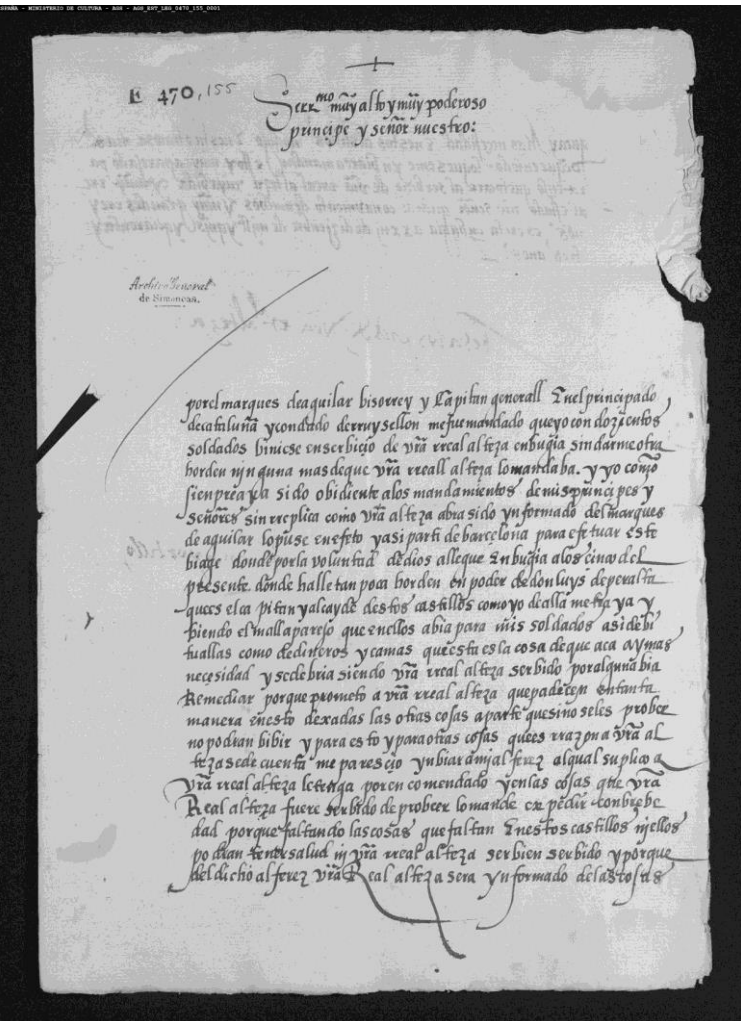 ESPAÑA - MINISTERIO DE CULTURA - AGS - AGS_EST_LEG_0470_155_0001
E 470, 155
Serr.mo muy alto y muy poderoso
principe y señor nuestro:
Archivo General
de Simancas.
por el marques de aguilar bisorrey y Capitan generall En el principado
de cataluña y condado de rruysellon me fue mandado que yo con dozientos
soldados biniese en serbiçio de vrã rreal alteza en bugia sin darme otra
horden ninguna mas de que vrã rreall alteza lo mandaba. y yo como
sienpre aya sido obidiente a los mandamientos de mis prinçipes y
señores sin rreplica como vrã alteza abra sido ynformado del marques
de aguilar lo puse en efeto y asi parti de barcelona para efetuar este
biage donde por la voluntad de dios allegue En bugia a los cinco del
presente. donde halle tan poca horden en poder de don luys de peralta
que es el capitan y alcayde destos castillos como yo de alla me traya y
biendo el mall aparejo que en ellos abia para mis soldados asi de bi
tuallas como de dineros y camas que esta es la cosa de que aca ay mas
neçesidad y se debria siendo vrã rreal alteza serbido por alguna bia
Remediar porque prometo a vrã rreal alteza que padeçen en tanta
manera en esto dexadas las otras cosas aparte que si no se les probee
no podran bibir y para esto y para otras cosas que es rrazon a vrã al
teza se de cuenta me paresçio ynbiar a mi alferez al qual suplico a
vrã rreal alteza le tenga por encomendado y en las cosas que vrã
Real alteza fuere serbido de probeer lo mande expedir con brebe
dad porque faltando las cosas que faltan En estos castillos ni ellos
podran tener salud ni vrã rreal alteza ser bien serbido y porque
del dicho alferez vrã Real alteza sera ynformado de las cosas